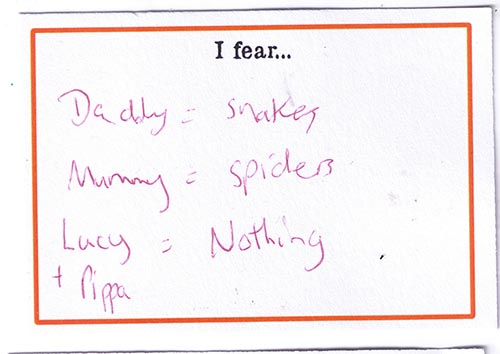 I fear...
Daddy = snakes
Mummy = spiders
Lucy = Nothing
+ Pippa